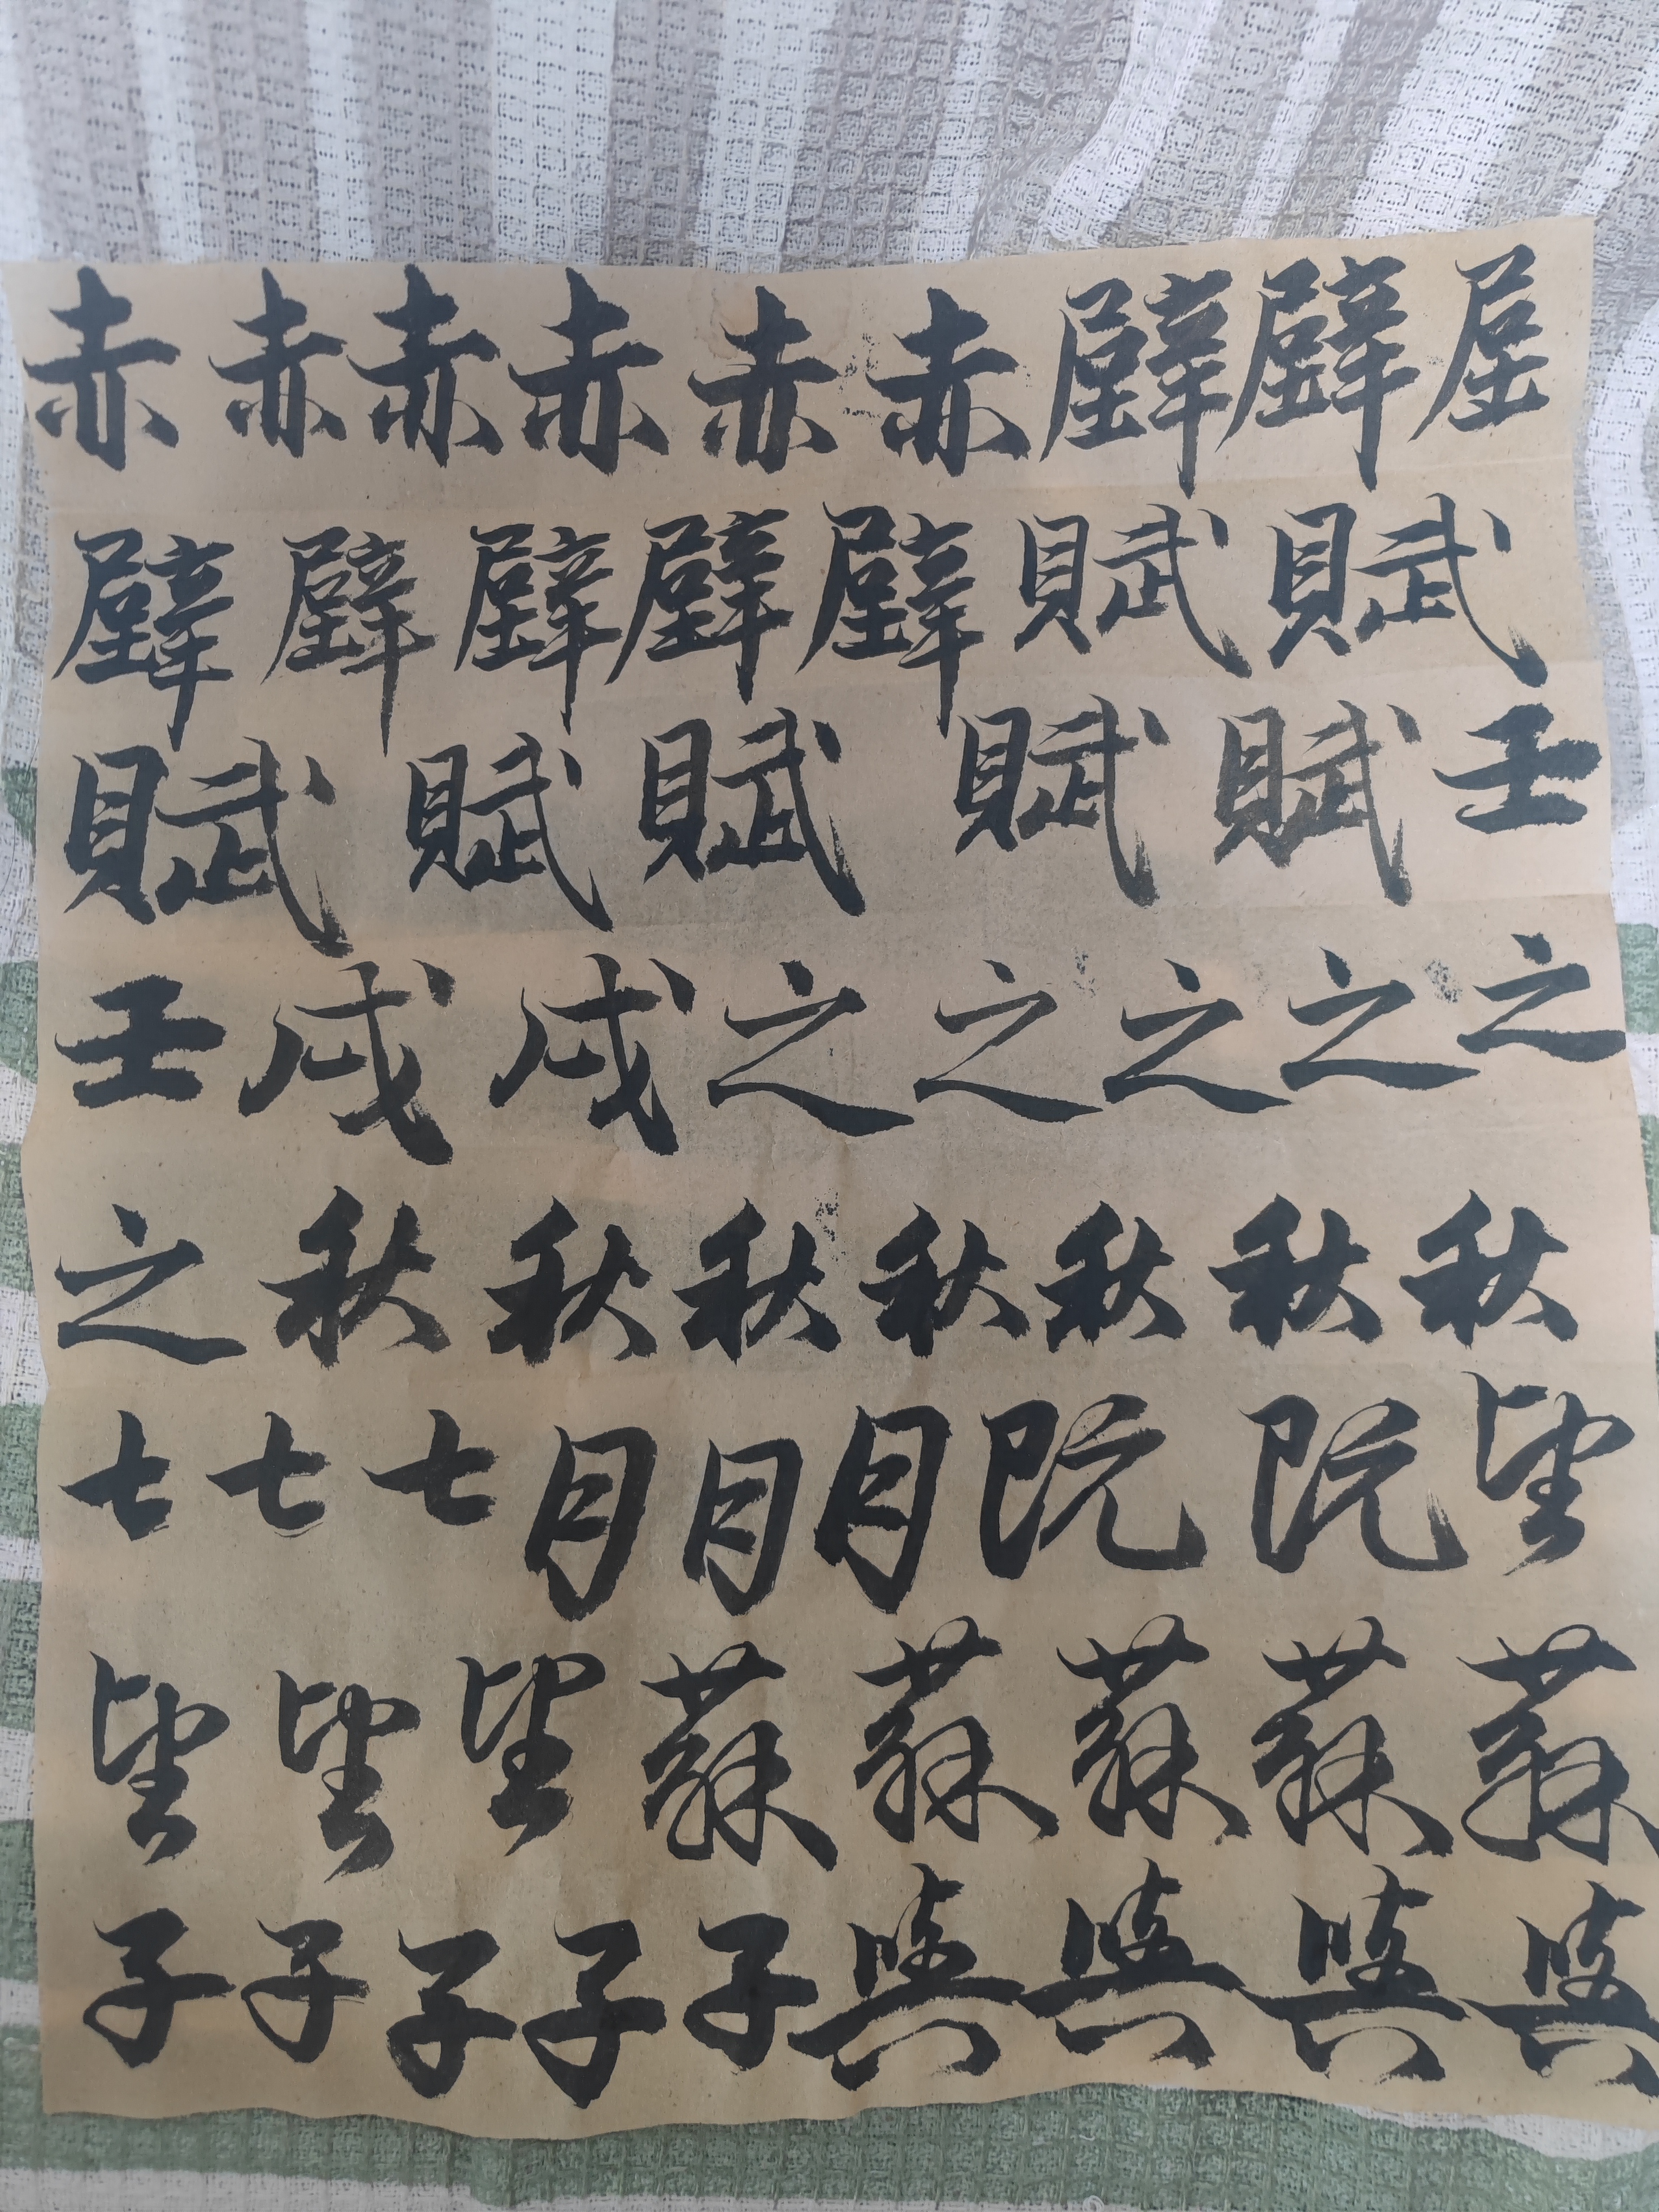 赤赤赤赤赤赤壁壁
壁壁壁壁壁賦賦
賦賦賦賦賦壬
壬戌戌之之之之之
之秋秋秋秋秋秋秋
七七七月月月既既望
望望望蘇蘇蘇蘇蘇
子子子子子與與與與